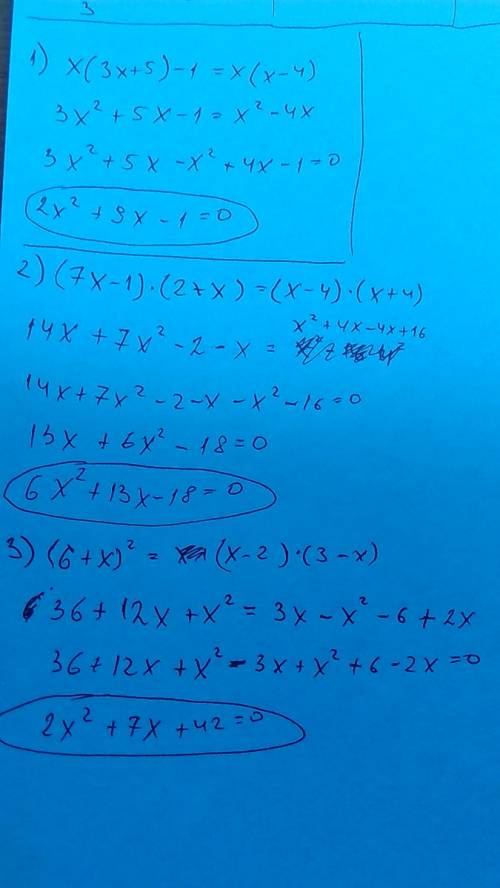 3
1) x(3x+5)-1=x(x-4)
3x²+5x-1=x²-4x
3x²+5x-x²+4x-1=0
2x²+9x-1=0
2) (7x-1)·(2+x)=(x-4)·(x+4)
14x+7x²-2-x= x²+4x-4x+16
14x+7x²-2-x-x²-16=0
13x+6x²-18=0
6x²+13x-18=0
3) (6+x)²= (x-2)·(3-x)
36+12x+x²=3x-x²-6+2x
36+12x+x²-3x+x²+6-2x=0
2x²+7x+42=0